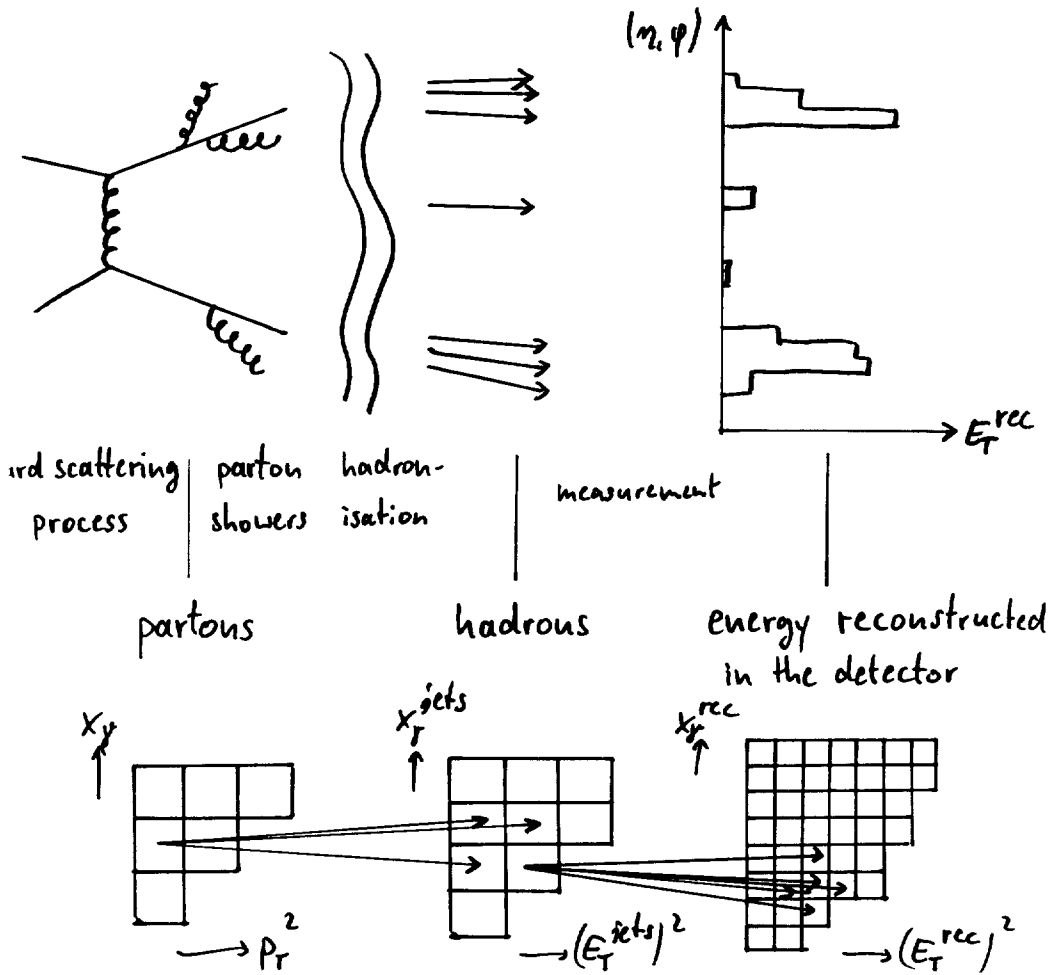 (η, φ)
E_T^rec
ard scattering
process
parton
showers
hadron-
isation
measurement
partons
hadrons
energy reconstructed
in the detector
x_γ
x_γ^jets
x_γ^rec
p_T^2
(E_T^jets)^2
(E_T^rec)^2